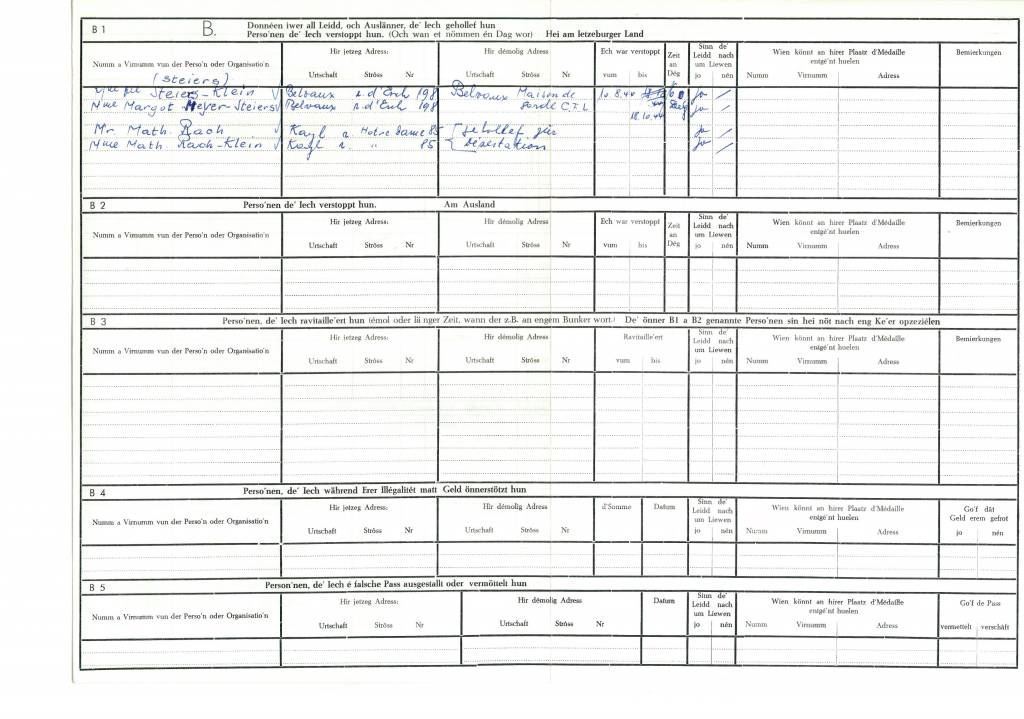 B 1
B.
Donnéen iwer all Leidd, och Auslänner, de' Iech gehollef hun
Perso'nen de' Iech verstoppt hun. (Och wan et nömmen én Dag wor) Hei am letzeburger Land
Numm a Virnumm vun der Perso'n oder Organisatio'n
Hir jetzeg Adress:
Urtschaft Ströss Nr
Hir démolig Adress:
Urtschaft Ströss Nr
Ech war verstoppt
vum bis
Zeit
an
Dég
Sinn de'
Leidd nach
um Liewen
jo nén
Wien könnt an hirer Plaatz d'Médaille
entgé'nt huelen
Numm Virnumm Adress
Bemierkungen
(Steiers)
Steiers-Klein √ Belvaux r. d'Esch 198 Belvaux Maison de 10.8.44 jo /
Mme Margot Meyer-Steiers √ Belvaux r. d'Esch 198 C.F.L jo /
18.10.44
Mr. Math. Rach √ Kayl r. Notre Dame 85 jo /
Mme Math. Rach-Klein √ Kayl r. " 85 jo /
B 2
Perso'nen de' Iech verstoppt hun. Am Ausland
Numm a Virnumm vun der Perso'n oder Organisatio'n
Hir jetzeg Adress:
Urtschaft Ströss Nr
Hir démolig Adress:
Urtschaft Ströss Nr
Ech war verstoppt
vum bis
Zeit
an
Dég
Sinn de'
Leidd nach
um Liewen
jo nén
Wien könnt an hirer Plaatz d'Médaille
entgé'nt huelen
Numm Virnumm Adress
Bemierkungen
B 3
Perso'nen, de' Iech ravitaille'ert hun (émol oder länger Zeit, wann der z.B. an engem Bunker wort.) De' önner B1 a B2 genannte Perso'nen sin hei nöt nach eng Ke'er opzeziélen
Numm a Virnumm vun der Perso'n oder Organisatio'n
Hir jetzeg Adress:
Urtschaft Ströss Nr
Hir démolig Adress
Urtschaft Ströss Nr
Ravitaille'ert
vum bis
Sinn de'
Leidd nach
um Liewen
jo nén
Wien könnt an hirer Plaatz d'Médaille
entgé'nt huelen
Numm Virnumm Adress
Bemierkungen
B 4
Perso'nen, de' Iech während Erer Illégalitét matt Geld önnerstötzt hun
Numm a Virnumm vun der Perso'n oder Organisatio'n
Hir jetzeg Adress:
Urtschaft Ströss Nr
Hir démolig Adress:
Urtschaft Ströss Nr
d'Somme
Datum
Sinn de'
Leidd nach
um Liewen
jo nén
Wien könnt an hirer Plaatz d'Médaille
entgé'nt huelen
Numm Virnumm Adress
Go'f dât
Geld erem gefrot
jo nén
B 5
Person'nen, de' Iech é falsche Pass ausgestallt oder vermöttelt hun
Numm a Virnumm vun der Perso'n oder Organisatio'n
Hir jetzeg Adress:
Urtschaft Ströss Nr
Hir démolig Adress
Urtschaft Ströss Nr
Datum
Sinn de'
Leidd nach
um Liewen
jo nén
Wien könnt an hirer Plaatz d'Médaille
entgé'nt huelen
Numm Virnumm Adress
Go'f de Pass
vermettelt verschâft